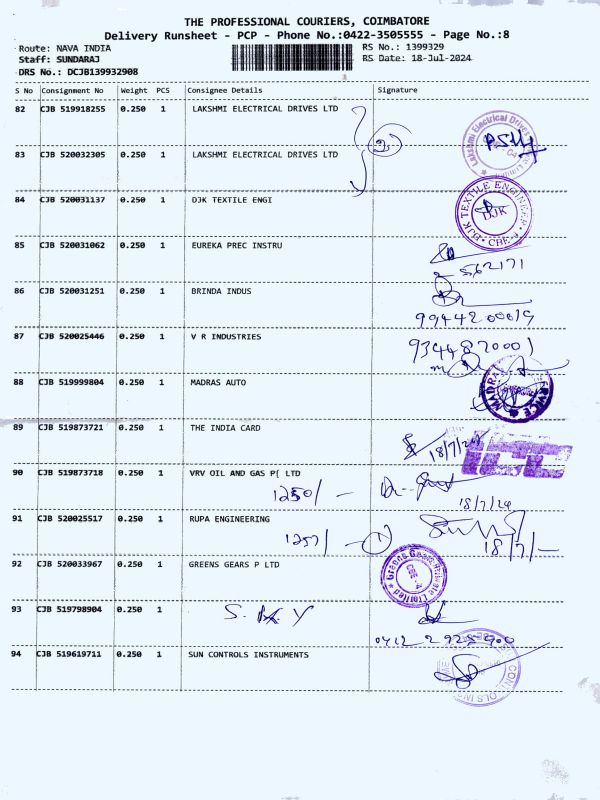 THE PROFESSIONAL COURIERS, COIMBATORE
Delivery Runsheet - PCP - Phone No.:0422-3505555 - Page No.:8
Route: NAVA INDIA RS No.: 1399329
Staff: SUNDARAJ RS Date: 18-Jul-2024
DRS No.: DCJB139932908
S No Consignment No Weight PCS Consignee Details Signature
82 CJB 519918255 0.250 1 LAKSHMI ELECTRICAL DRIVES LTD
2
Lakshmi Electrical Drives
83 CJB 520032305 0.250 1 LAKSHMI ELECTRICAL DRIVES LTD
84 CJB 520031137 0.250 1 DJK TEXTILE ENGI
DJK TEXTILE ENGINEER
DJK
CBE-4
85 CJB 520031062 0.250 1 EUREKA PREC INSTRU
2562171
86 CJB 520031251 0.250 1 BRINDA INDUS
9944200019
87 CJB 520025446 0.250 1 V R INDUSTRIES
9344870001
88 CJB 519999804 0.250 1 MADRAS AUTO
MADRAS SERVICE
89 CJB 519873721 0.250 1 THE INDIA CARD
18/7/24
90 CJB 519873718 0.250 1 VRV OIL AND GAS P( LTD
1250/-
18/7/24
91 CJB 520025517 0.250 1 RUPA ENGINEERING
1257/- 1
18/7/-
92 CJB 520033967 0.250 1 GREENS GEARS P LTD
Greens Gears Private Limited
CBE-4
93 CJB 519798904 0.250 1
0422 2925900
94 CJB 519619711 0.250 1 SUN CONTROLS INSTRUMENTS